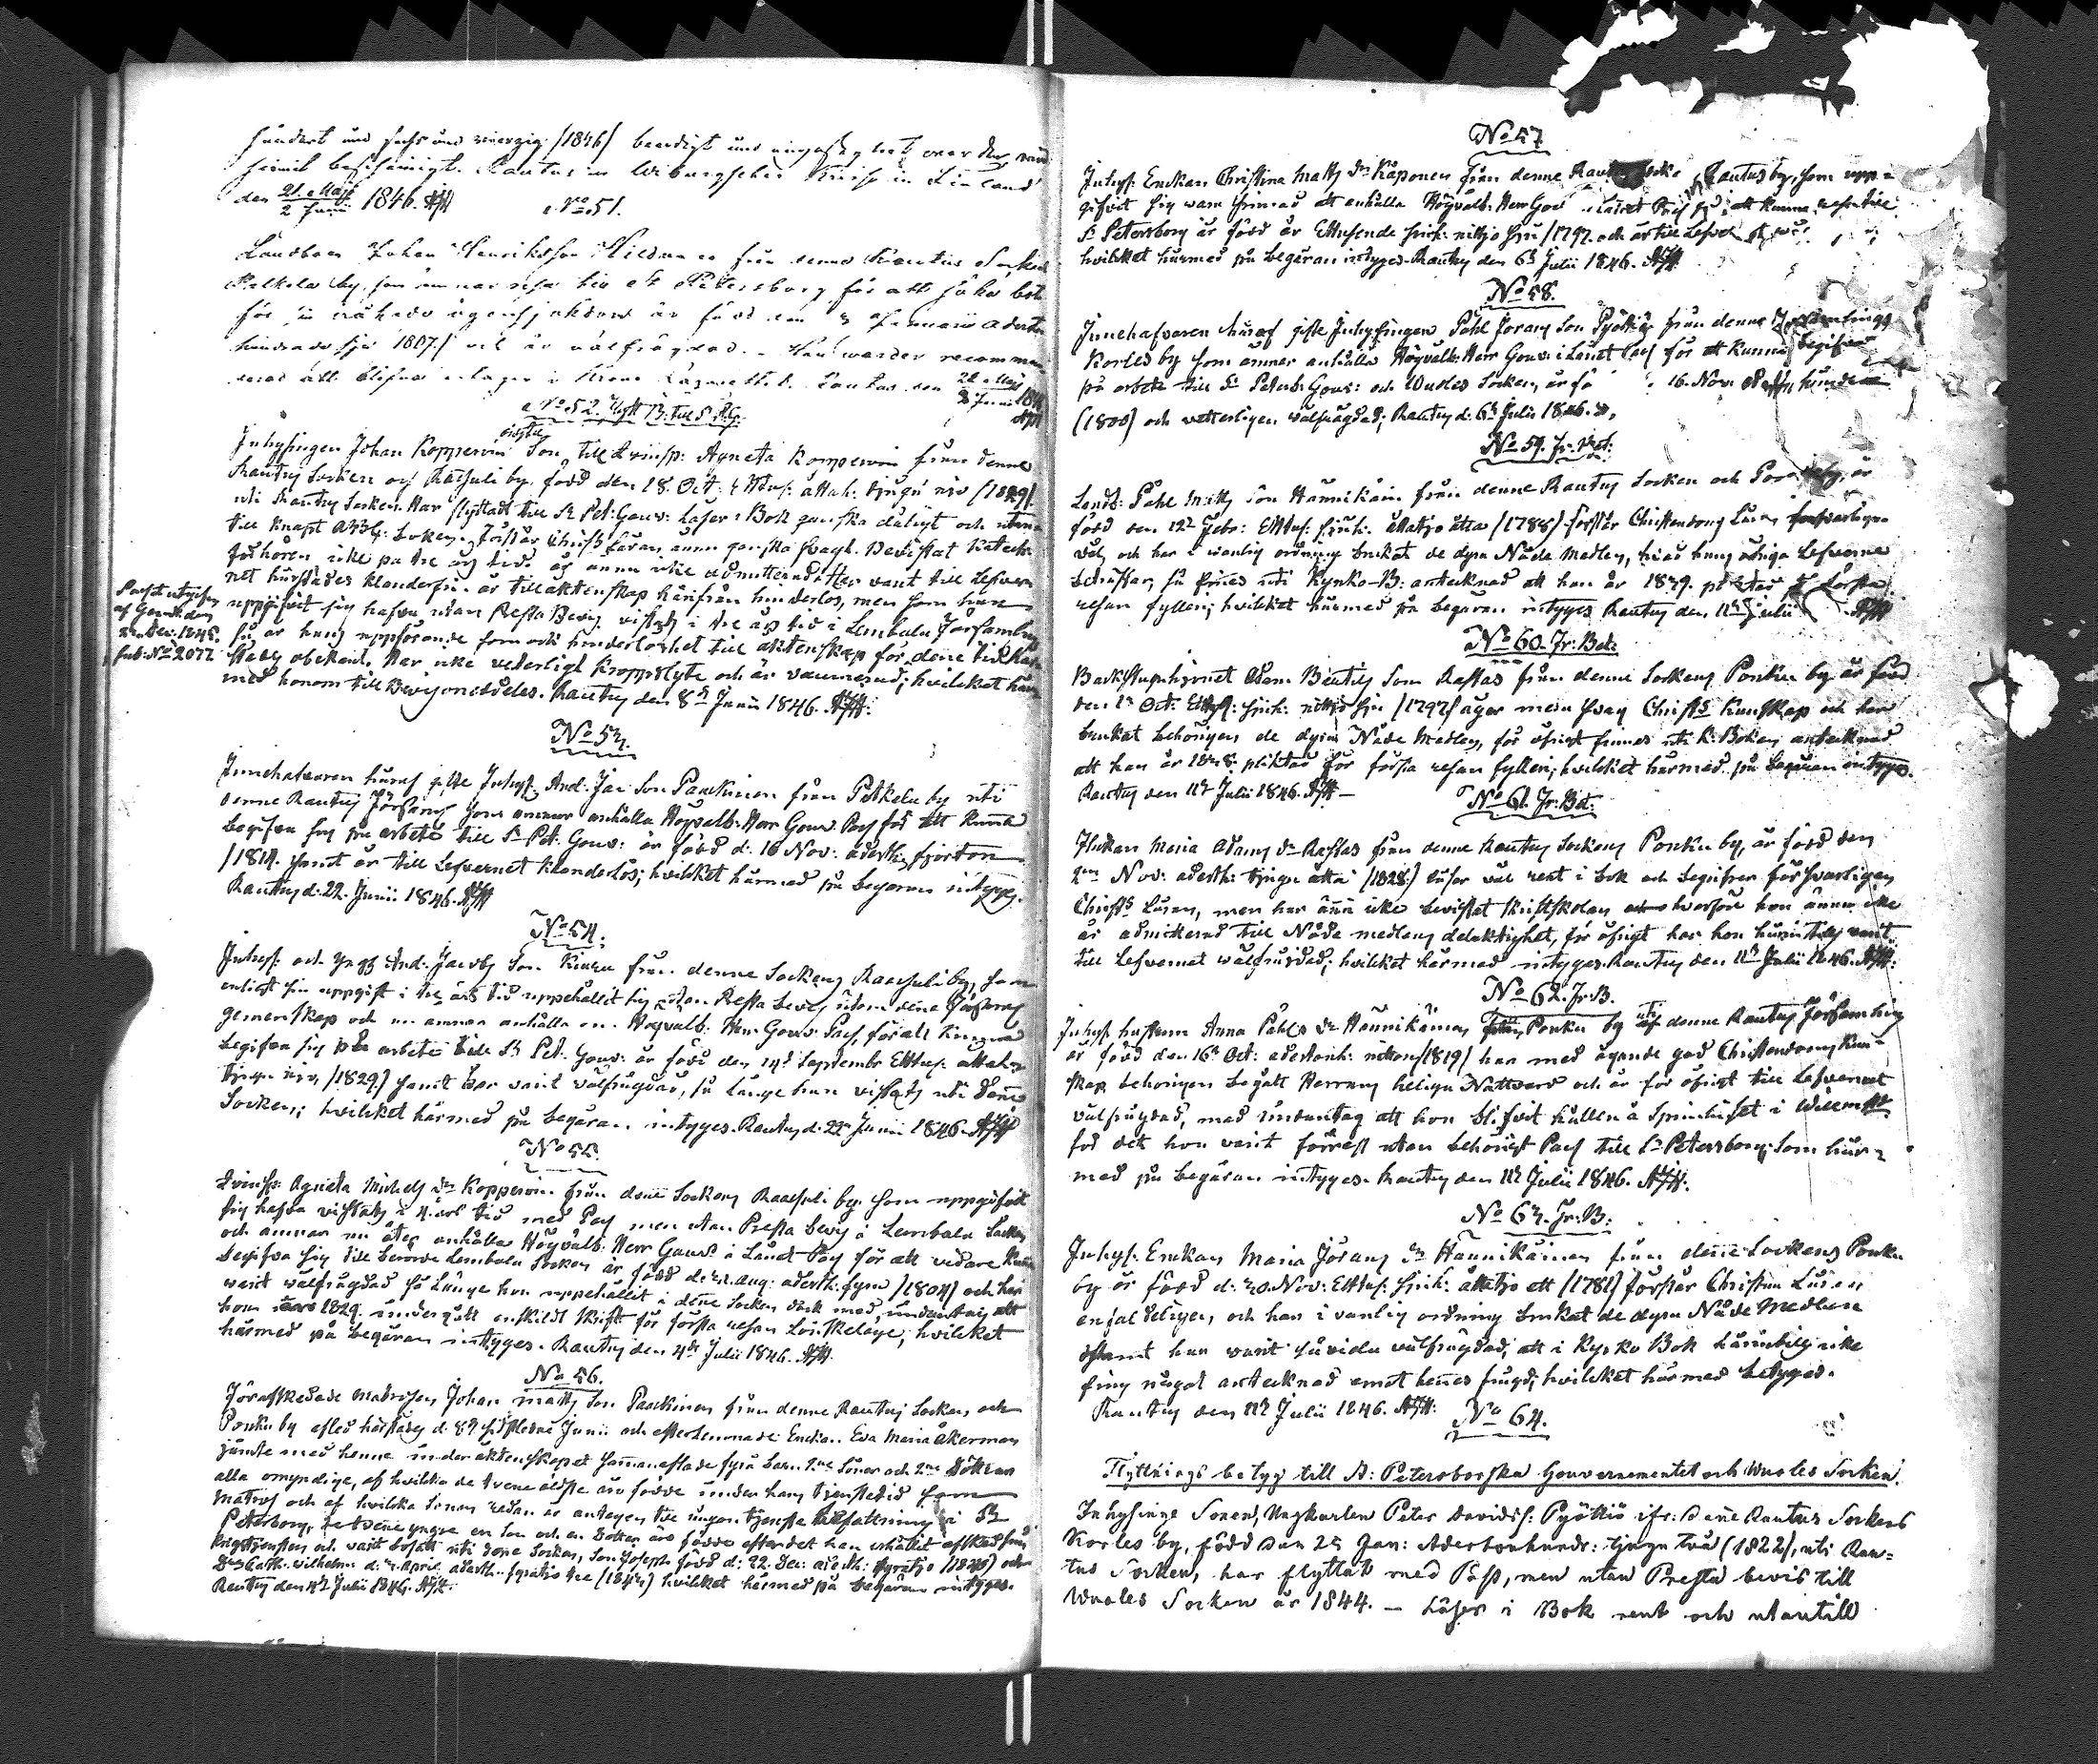 hundert und sechs und vierzig /1846/ beendigt und
bescheinigt. Rautus im Wiburgschen Kreise in Finland
den 21 Maji / 2 Junii 1846.
No 51.
Landboen Johan Henriksson Hildunen från denna Rautus Socken
Petkelä by, som ämnar resa till St Petersburg för att söka bot
för sin ögonsjukdom är född den 3 Januarii Aderton
hundrade sju 1807/ och är välfrägdad. - Han warder recommen-
derad att blifva intagen i Krono Lazarettet. Rautus den 21 Maji / 2 Junii 184
No 52. Flytt B. till St P.G.
Inhysingen Johan Kopperoin Son, till Qvinsp: Agneta Kopperoin från denne
Rautus Socken och Raasuli by, född den 18. Oct: Ettus: åttah: tjugu nio (1829)
uti Rautus Socken. Har flyttadt till St Pet: Gouv: Läser i Bok ganska dåligt och utan-
till knapt ABC-Boken. Förstår Christs Läran ännu ganska svagt. Bevistat Katech.
förhören icke på tre års tid, är ännu icke admitterad. Har varit till Lefver-
net härstädes klanderfri är till äktenskap härifrån hinderlös, men som han
uppgifvit sig hafva utan Presta Bevis vistats i tre års tid i Lembala Församling
så är hans uppförande som ock hinderlöshet till äktenskap för denne tid här-
städes obekant. Har icke vederligt Kroppslyte och är vaccinerad; hvilcket här-
med honom till Bevis meddelas. Rautus den 8de Junii 1846.
Passet utgifvet
af Gouv: den
Dec. 1848.
sub No 2077
No 53.
Innehafvaren häraf gifte Inhys: And: Jac Son Paukinen från Petkelä by uti
denne Rautus Förs: som ämnar anhålla Högvälb: Herr Gouv: Pass för att kunna
begifva sig på arbete till St Pet: Gouv: är född d: 16 Nov: aderth: fjorton
/1814. samt är till Lefvernet klanderlös; hvilcket härmed på begäran intyges.
Rautus d: 22. Junii 1846.
No 54.
Inhys: och Yngl: And: Jacobs Son Kiuru från denne Sockens Raasuli by, som
enligt sin uppgift i tre års tid uppehållit sig utan Presta Bevis utom denne Förs:
gemenskap och nu ämnar anhålla om Högvälb: Herr Gouv: Pass, för att kunna
begifva sig på arbete till St Pet: Gouv: är född den 14d Septembr Ettus: åttah:
tjugu nio, /1829/ samt har varit välfrägdad, så länge han vistats uti denne
Socken; hvilcket härmed på begäran intyges. Rautus d: 22 Junii 1846.
No 55.
Qvinsp: Agneta Michels Dr Kopperoin från denne Sockens Raasuli by, som uppgifvit
sig hafva vistats i 4. års tid med Pass men utan Presta Bevis i Lembala Socken
och ämnar nu åter anhålla Högvälb: Herr Gouv: i Länet Pass för att vidare kunna
begifva sig till berörde Lembala Socken är född d: 22. Aug: aderth: fyra /1804/ och har
varit välfrägdad så länge hon uppehållit i denne Socken dock med undantag att
hon åren 1829. undergått enskildt Skrift för första resan Lönskeläge; hvilcket
härmed på begäran intyges. Rautus den 4de Julii 1846.
No 56.
Förafskedade Matrosen Johan Matts Son Paukinen från denne Rautus Socken och
Ponku by afled härstädes d: 8 sistledne Junii och efterlemnade Enckan Eva Maria Åkerman
jämte med henne under äktenskapet sammanaflade fyra barn 2ne Söner och 2ne Döttrar
alla omyndige, af hvilcka de tvene äldste äro födde under hans tjenstetid som
Matros och af hvilcka Sonen redan är antagen till ungen tjenste befattning i St
Petersborg, de tvene yngre en Son och en Dotter äro födde efterdet han erhållit afsked från
Krigstjensten och varit bosatt uti denne Socken, Son Joseph född d: 22. Dec: aderth: fyratio /1840/ och
Dr Cath: Vilhelm: d: 2 April aderth: fyratio tre (1843) hvilcket härmed på begäran intyges.
Rautus den 4de Julii 1846.
No 57.
Inhys: Enckan Christina Matts Dr Käponen från denne Rautus Socken, Rautus by, som upp-
gifvit sig vara sinnad att anhålla Högvälb: Herr Gouv i Länet Pass för att kunna resa till
St Petersborg är född år Ettusende sjuh: nittjo sju /1797. och är till Lefvernet
hvilcket härmed på begäran intyges. Rautus den 6te Julii 1846.
No 58.
Innehafvaren häraf gifte Inhysingen Påhl Jörans Son Pyöttiö från denne Församlings
Korles by som ämnar anhålla Högvälb: Herr Gouv: i Länet Pass för att kunna begifva
på arbete till St Petersb: Gouv: och Wuoles Socken, är född 16. Nov:
(1800) och vitterligen välfrägdad; Rautus d: 6te Julii 1846.
No 59. Fr. Bet:
Landb: Påhl Matts Son Hännikäin från denne Rautus Socken och Ponku by, är
född den 12te Febr: Ettus: sjuh: åttatjo åtta /1788/ förstår Christendoms Läran försvarligen
väl, och har i vanlig ordning brukat de dyra Nåde Medlen, hvad hans öfriga Lefverne
beträffar, så finnes uti Kyrko-B: antecknad att han år 1829. pliktat för första
resan fylleri; hvilcket härmed på begäran intyges Rautus den 11te Julii
No 60. Fr: Bet:
Backstuguhjonet Adam Bentis Son Rastas från denne Sockens Ponku by är född
den 1 Oct: Ettus: sjuh: nittjo sju /1797/ äger mera svag Christs Kunskap och har
brukat behörigen de dyra Nåde Medlen, för öfrigt finnes uti K: Boken antecknad
att han år 1828. pliktat för första resan fylleri; hvilcket härmed på begäran intyges.
Rautus den 11te Julii 1846.
No 61. Fr: Bet:
Flickan Maria Adams Dr Rastas från denne Rautus Sockens Ponku by, är född den
2 Nov: aderth: tjugu åtta /1828:/ läser väl rent i bok och begriper försvarligen
Christs Läran, men har ännu icke bevistat Skriftskolan hvarföre hon ännu icke
är admitterad till Nåde medlens delaktighet, för öfrigt har hon härintills varit
till Lefvernet välfrägdad; hvilcket härmed intyges. Rautus den 11te Julii 1846.
No 62. Fr. B.
Inhys: hustrun Anna Påhls Dr Hännikäinen Ponku by uti denne Rautus Församling
är född den 16 Oct: adertonh: nitton /1819/ har med ägande god Christendoms Kun-
skap behörigen begått Herrans heliga Nattvard och är för öfrigt till Lefvernet
välfrägdad, med undantag att hon blifvit hållen å Spinnhuset i Willmstr
för det hon varit förrest utan behörigt Pass till St Petersborg; Som här-
med på begäran intyges. Rautus den 11te Julii 1846.
No 63. Fr: B:
Inhys: Enckan Maria Jörans Dr Hännikäinen från denne Sockens Ponku
by är född d: 20. Nov: Ettus: sjuh: åttatjo ett /1781/ förstår Christna Läran
enfaldeligen, och har i vanlig ordning brukat de dyra Nåde Medlen
samt har varit såvida välfrägdad; att i Kyrko Bok härintills icke
fins något antecknad emot hennes frägd; hvilcket härmed betyges.
Rautus den 11te Julii 1846.
No 64.
Flyttnings betyg till St: Petersborgska Gouvernementet och Wuoles Socken.
Inhysinge Sonen, Ungkarlen Peter Davidss: Pyöttiö ifr: denne Rautus Sockens
Korles by, född den 25 Jan: Adertonhundr: tjugu två (1822), uti Rau-
tus Socken, har flyttat med Pass, men utan Presta bevis till
Wuoles Socken år 1844. — Läser i Bok rent och utantill